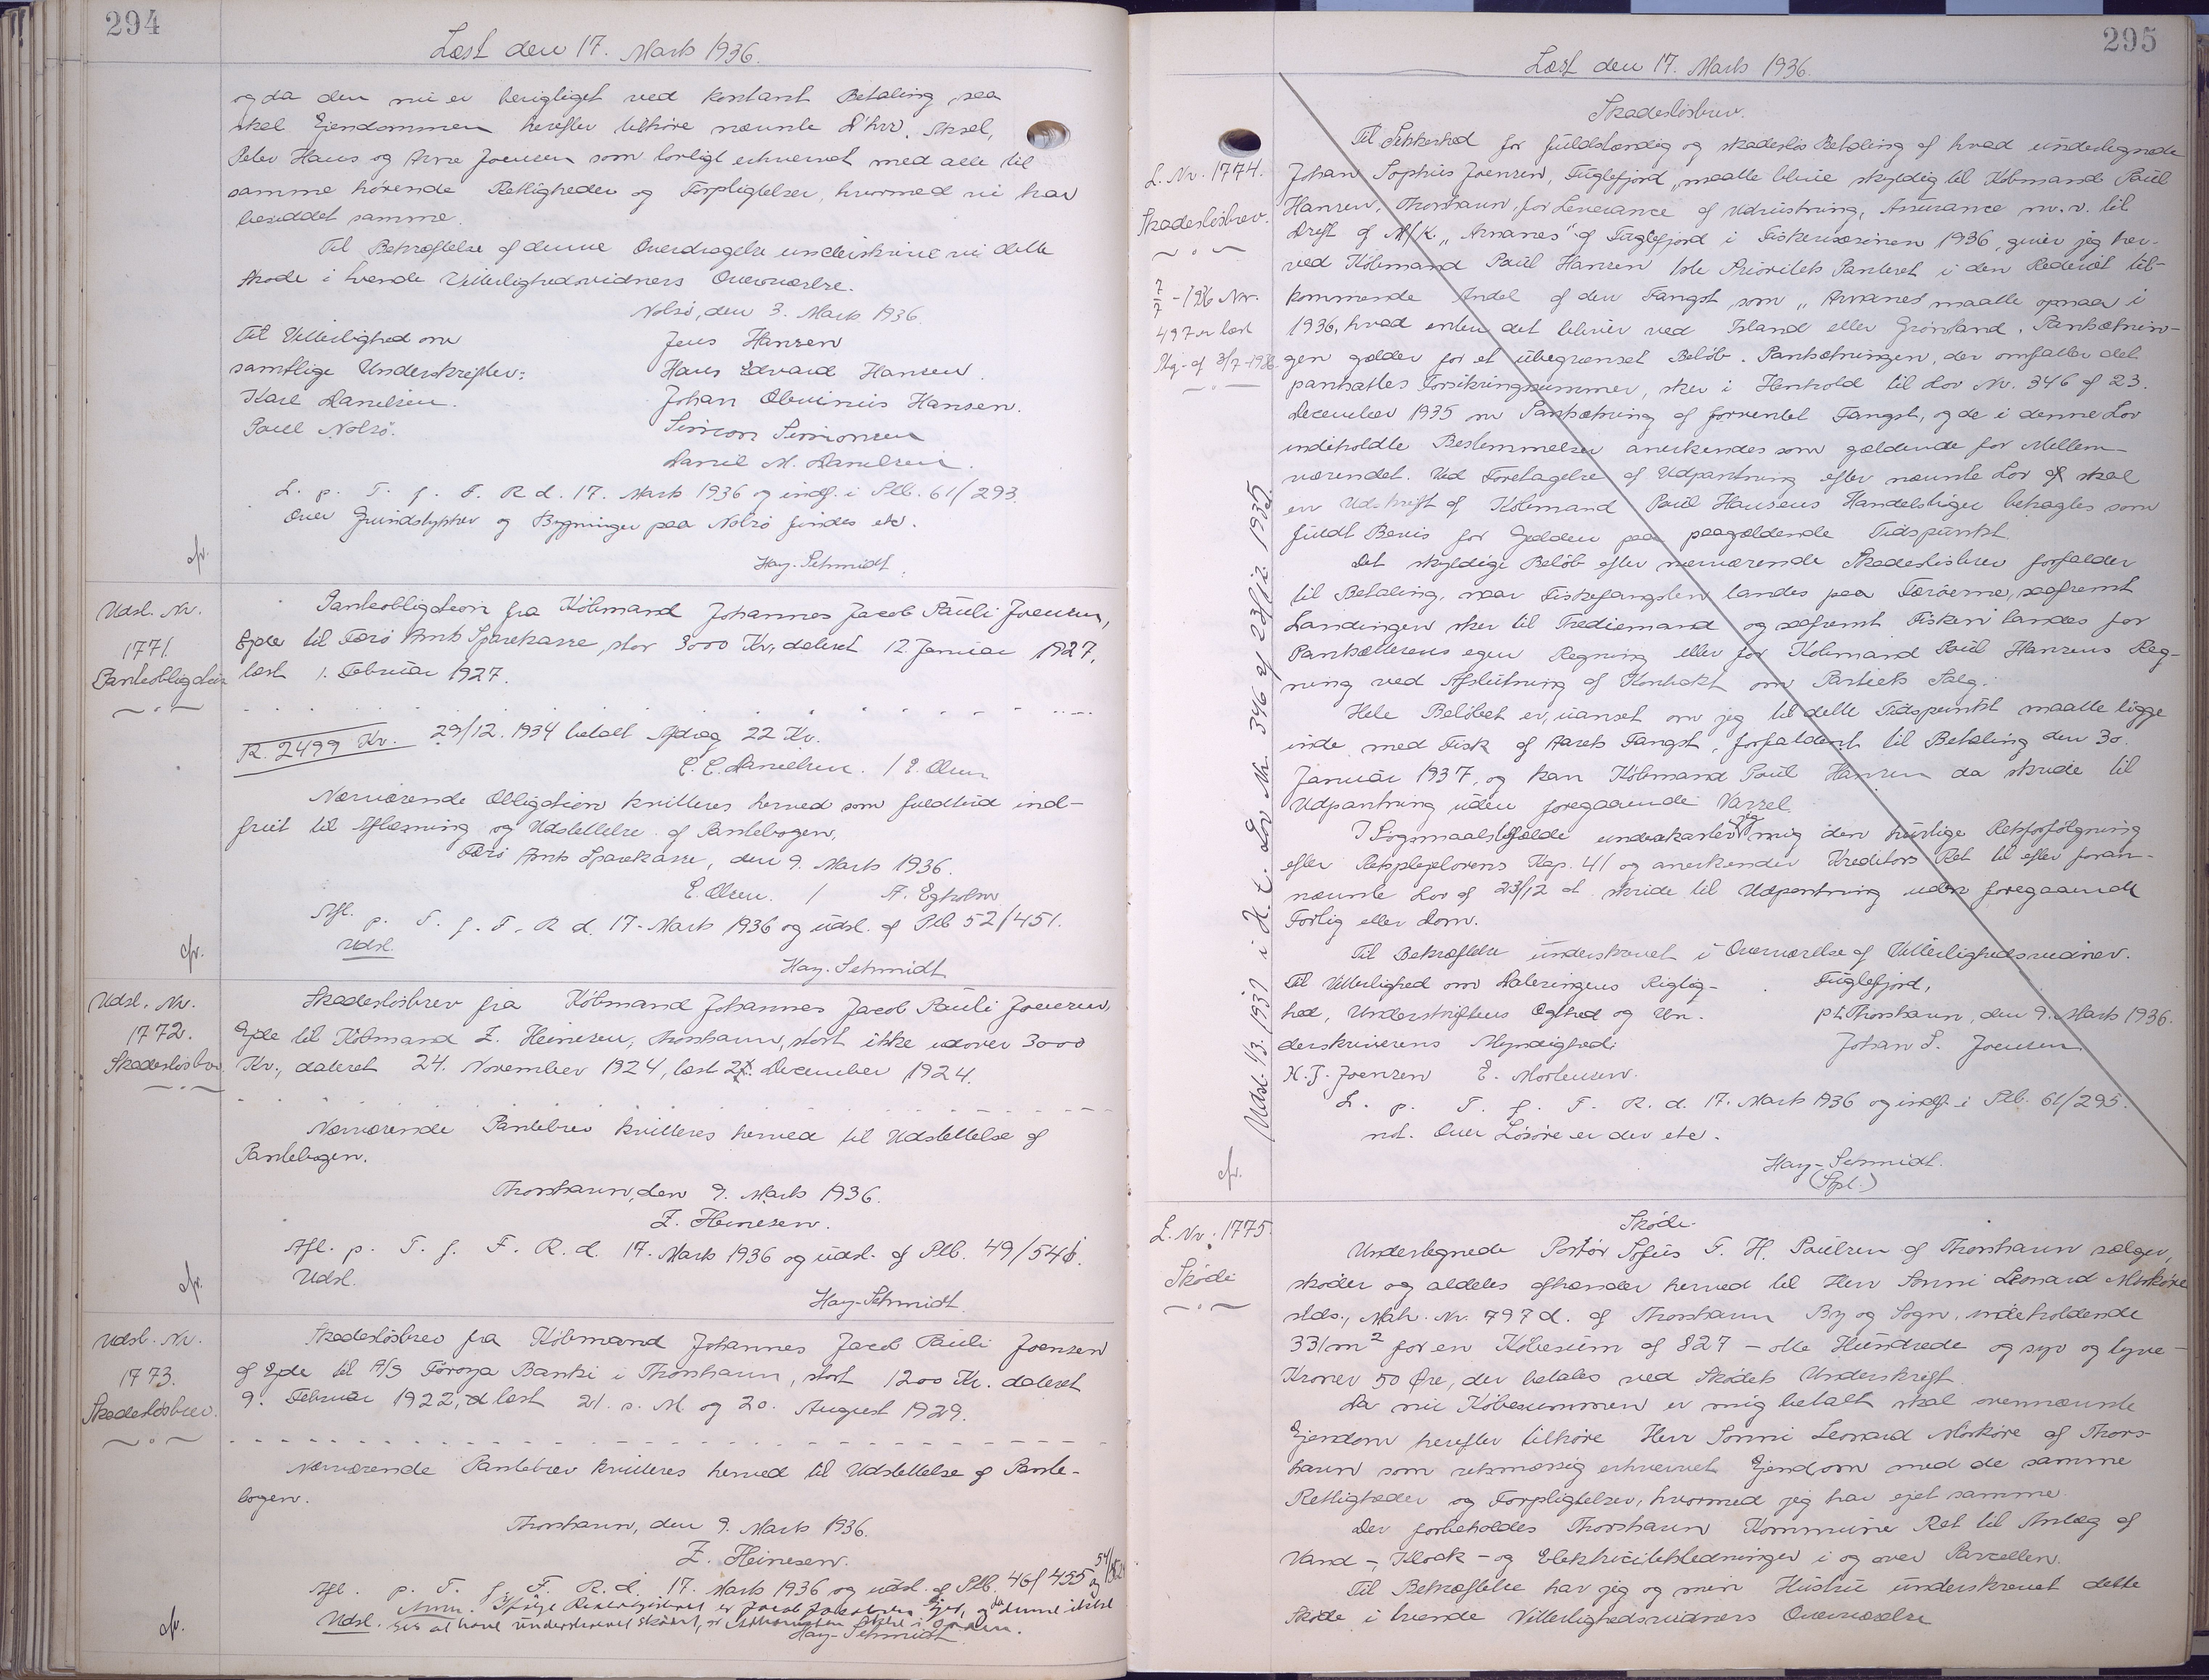 294
Læst den 17. Marts 1936.
og da den nu er berigtiget ved kontant Betaling, saa
skal Ejendommen herefter tilhøre nævnte D'hrr. Aksel,
Peter Hans og Arne Joensen som lovligt erhvervet med alle til
samme hørende Rettigheder og Forpligtelser, hvormed vi har
besiddet samme.
Til Bekræftelse af denne Overdragelse underskrive vi dette
Skøde i tvende Vitterlighedsvidners Overværelse.
Nolsø, den 3. Marts 1936.
Til Vitterlighed om
samtlige Underskrifter:
Karl Danielsen.
Poul Nolsö.
Jens Hansen
Hans Edvard Hansen.
Johan Olevinus Hansen.
Simon Simonsen
Daniel M. Danielsen.
L. p. T. f. F. R d. 17. Marts 1936 og indf. i Ptb. 61/293.
Over Grundstykker og Bygninger paa Nolsö findes etc.
cfr.
Hay-Schmidt.
Udsl. Nr.
1771.
Panteobligation
Panteobligation fra Købmand Johannes Jacob Pauli Joensen,
Ejde til Færø Amts Sparekasse, stor 3000 Kr., dateret 12. Januar 1927,
læst 1. Februar 1927.
R. 2499 Kr. 29/12. 1934 betalt Afdrag 22 Kr.
C. C. Danielsen. / E. Olsen
Nærværende Obligation kvitteres herved som fuldtud ind-
friet til Aflæsning og Udslettelse af Pantebogen.
Færø Amts Sparekasse, den 9. Marts 1936.
E. Olsen. / A. Egholm
Afl. p. T. f. F. R d. 17. Marts 1936 og udsl. af Ptb 52/451.
Udsl.
cfr.
Hay-Schmidt
Udsl. Nr.
1772.
Skadesløsbrev.
Skadesløsbrev fra Købmand Johannes Jacob Pauli Joensen,
Ejde til Købmand Z. Heinesen, Thorshavn, stort ikke udover 3000
Kr., dateret 24. November 1924, læst 2. December 1924.
Nærværende Pantebrev kvitteres herved til Udslettelse af
Pantebogen.
Thorshavn, den 9. Marts 1936.
Z. Heinesen.
Afl. p. T. f. F. R. d. 17. Marts 1936 og udsl. af Ptb. 49/546.
Udsl.
cfr.
Hay-Schmidt.
Udsl. Nr.
1773.
Skadesløsbrev.
Skadesløsbrev fra Købmand Johannes Jacob Pauli Joensen
af Ejde til A/S Föroya Banki i Thorshavn, stort 1200 Kr. dateret
9. Februar 1922, læst 21. s. M. og 20. August 1929.
Nærværende Pantebrev kvitteres herved til Udslettelse af Pante-
bogen.
Thorshavn, den 9. Marts 1936.
Z. Heinesen.
Afl. p. T. f. F. R. d. 17. Marts 1936 og udsl. af Ptb. 46/455 og 54/
Anm.
Udsl.
Hay-Schmidt
cfr.
295
Læst den 17. Marts 1936.
L. Nr. 1774.
Skadesløsbrev.
7/7 - 1936 Nr.
497 er læst
Skadesløsbrev.
Til Sikkerhed for fuldstændig og skadesløs Betaling af hvad undertegnede
Johan Sophus Joensen, Fuglefjord, maatte blive skyldig til Købmand Poul
Hansen, Thorshavn, for Leverance af Udrustning, Assurance m.v. til
Drift af M/K. "Arvanes" af Fuglefjord i Fiskerisæsonen 1936, giver jeg her-
ved Købmand Poul Hansen 1ste Prioritets Panteret i den Rederiet til-
kommende Andel af den Fangst, som "Arvanes" maatte opnaa i
1936, hvad enten det bliver ved Island eller Grønland. Pantsætnin-
gen gælder for et ubegrænset Beløb. Pantsætningen, der omfatter det
pantsattes Forsikringssummer, sker i Henhold til Lov Nr. 346 af 23.
December 1935 om Pantsætning af forventet Fangst, og de i denne Lov
indeholdte Bestemmelser anerkendes som gældende for Mellem-
værendet. Ved Foretagelse af Udpantning efter nævnte Lov skal
en Udskrift af Købmand Poul Hansens Handelsbøger betragtes som
fuldt Bevis for Gælden paa paagældende Tidspunkt.
Det skyldige Beløb efter nærværende Skadesløsbrev forfalder
til Betaling, naar Fiskefangsten landes paa Færøerne, saafremt
Landingen sker til Trediemand og saafremt Fisken landes for
Pantsætterens egen Regning eller for Købmand Poul Hansens Reg-
ning ved Afslutning af Kontrakt om Partiets Salg.
Hele Beløbet er, uanset om jeg til dette Tidspunkt maatte ligge
inde med Fisk af Aarets Fangst, forfaldent til Betaling den 30.
Januar 1937, og kan Købmand Poul Hansen da skride til
Udpantning uden foregaaende Varsel.
I Søgsmaalstilfælde underkaster jeg mig den hurtige Retsforfølgning
efter Retsplejelovens Kap. 41 og anerkender Kreditors Ret til efter foran-
nævnte Lov af 23/12 at skride til Udpantning uden foregaaende
Forlig eller Dom.
Til Bekræftelse underskrevet i Overværelse af Vitterlighedsvidner.
Til Vitterlighed om Dateringens Rigtig-
hed, Underskriftens Ægthed og Un-
derskriverens Myndighed:
K. J. Joensen E. Mortensen.
Fuglefjord,
p.t. Thorshavn, den 9. Marts 1936.
Johan S. Joensen
L. p. T. f. F. R. d. 17. Marts 1936 og indf. i Ptb. 61/295.
not. Over Løsøre er der etc.
cfr.
Hay-Schmidt.
(Spl.)
Udsl. 1/3 1937 i H. t. Lov Nr. 346 af 23/12 1935.
L. Nr. 1775.
Skøde
Skøde.
Undertegnede Portør Sofus T. H. Poulsen af Thorshavn sælger,
skøder og aldeles afhænder herved til Herr Sonni Leonard Mørkøre
stds., Matr. Nr. 797 d. af Thorshavn By og Sogn, indeholdende
331 m² for en Købesum af 827 - otte Hundrede og syv og tyve -
Kroner 50 Øre, der betales ved Skødets Underskrift.
Da nu Købesummen er mig betalt skal ovennævnte
Ejendom herefter tilhøre Herr Sonni Leonard Mørkøre af Thors-
havn som retsmæssig erhvervet Ejendom med de samme
Rettigheder og Forpligtelser, hvormed jeg har ejet samme.
Der forbeholdes Thorshavn Kommune Ret til Anlæg af
Vand-, Kloak- og Elektricitetsledninger i og over Parcellen.
Til Bekræftelse har jeg og min Hustru underskrevet dette
Skøde i tvende Vitterlighedsvidners Overværelse